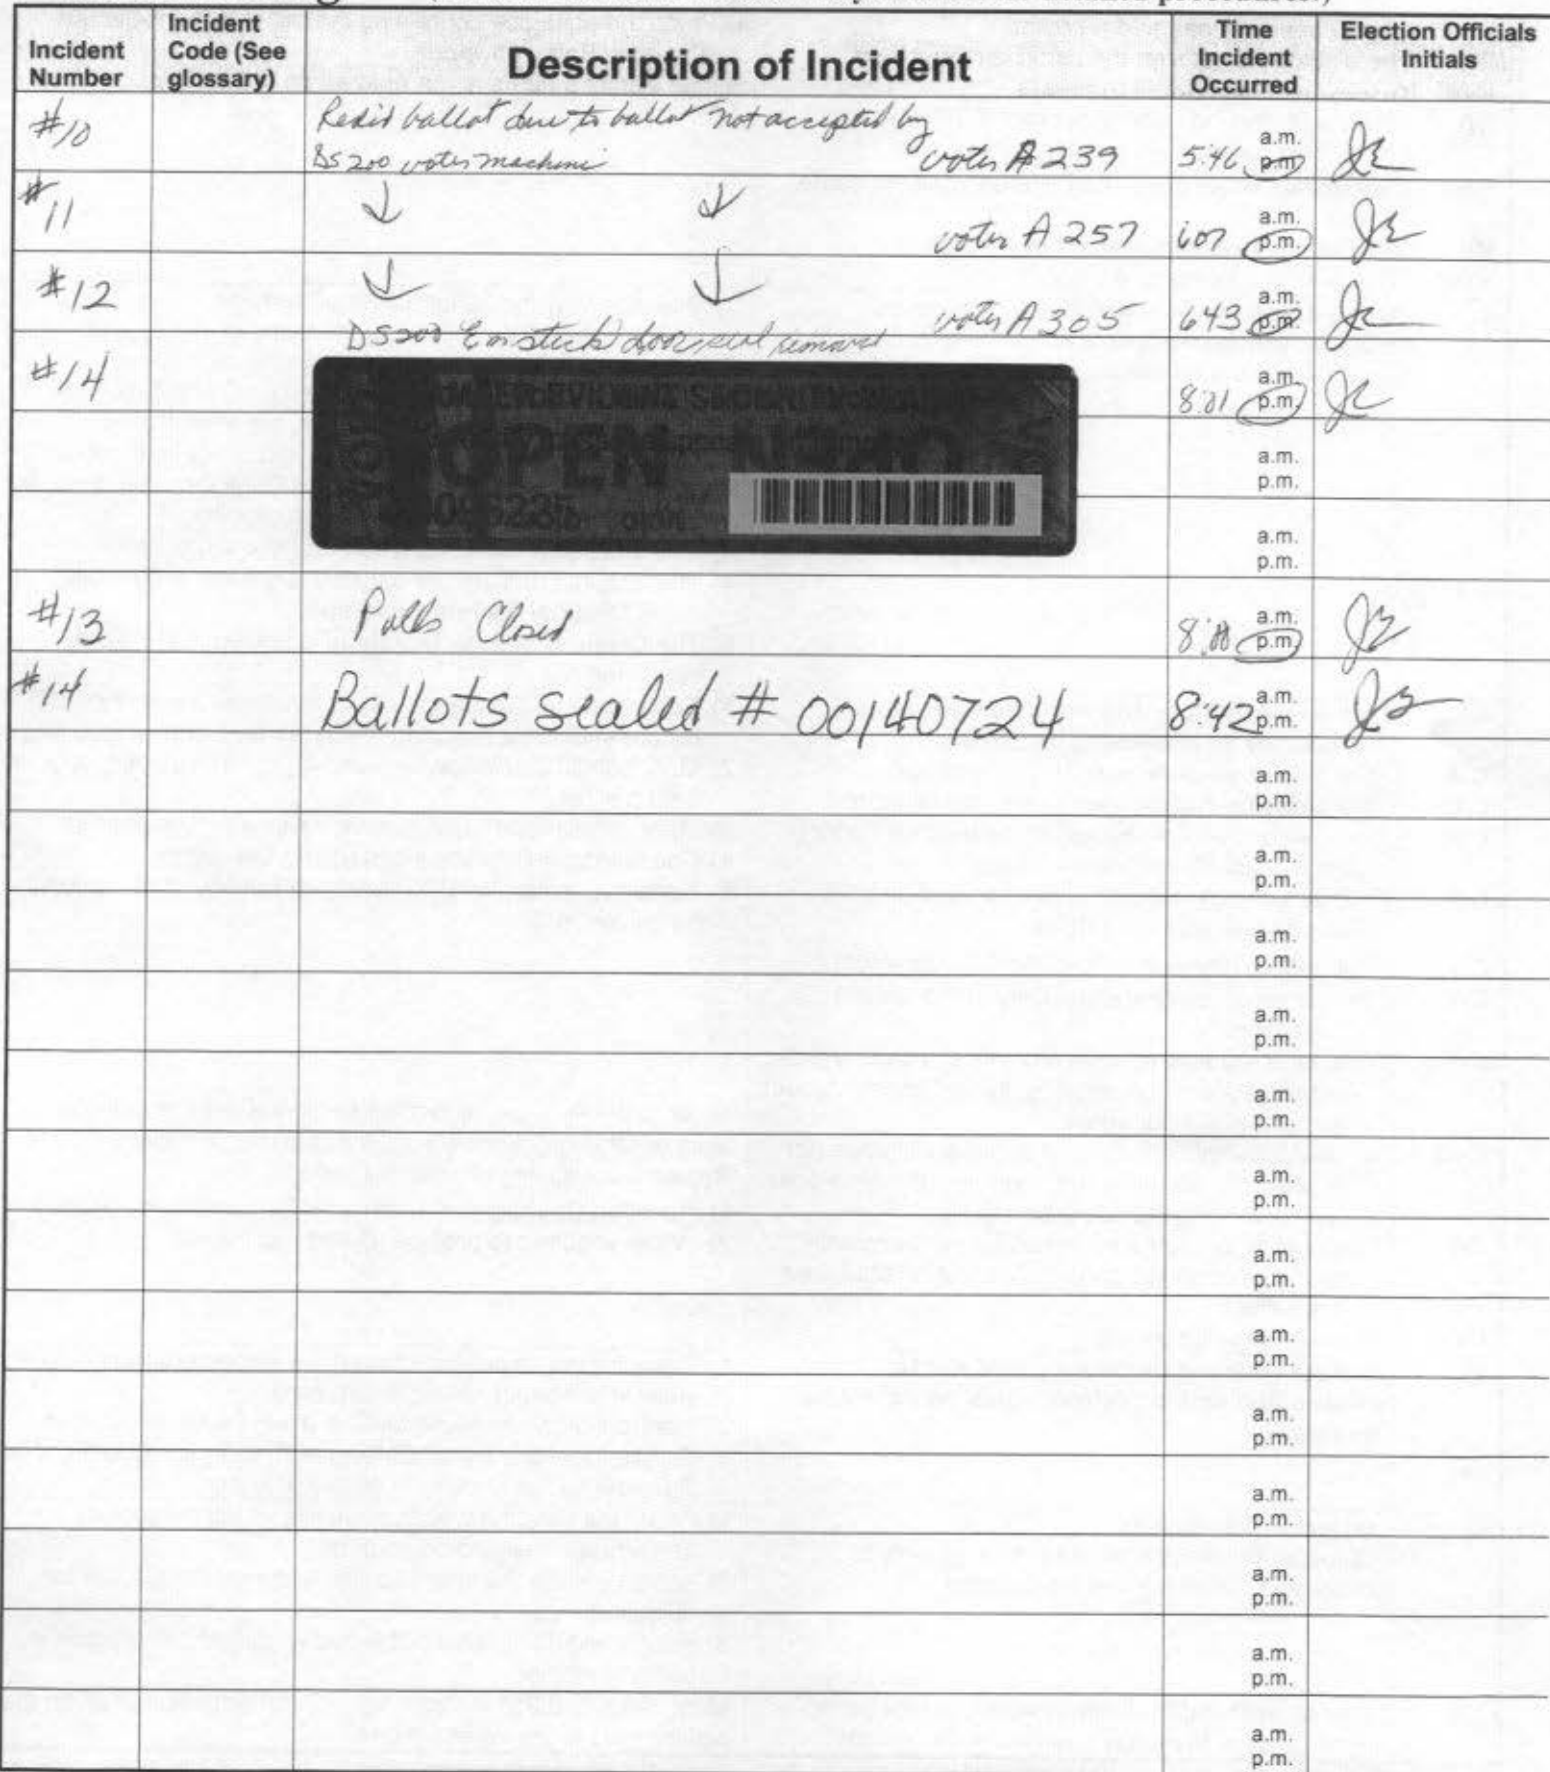 Incident Number
Incident Code (See glossary)
Description of Incident
Time Incident Occurred
Election Officials Initials
#10
Redid ballot due to ballot not accepted by
DS200 voter machine voter A 239
5:46 a.m. p.m.
#11
voter A 257
607 a.m. p.m.
#12
voter A 305
643 a.m. p.m.
DS200 door seal removed
#14
8:01 a.m. p.m.
OPEN
a.m. p.m.
a.m. p.m.
#13
Polls Closed
a.m. p.m.
#14
Ballots sealed # 00140724
8:42 a.m. p.m.
a.m. p.m.
a.m. p.m.
a.m. p.m.
a.m. p.m.
a.m. p.m.
a.m. p.m.
a.m. p.m.
a.m. p.m.
a.m. p.m.
a.m. p.m.
a.m. p.m.
a.m. p.m.
a.m. p.m.